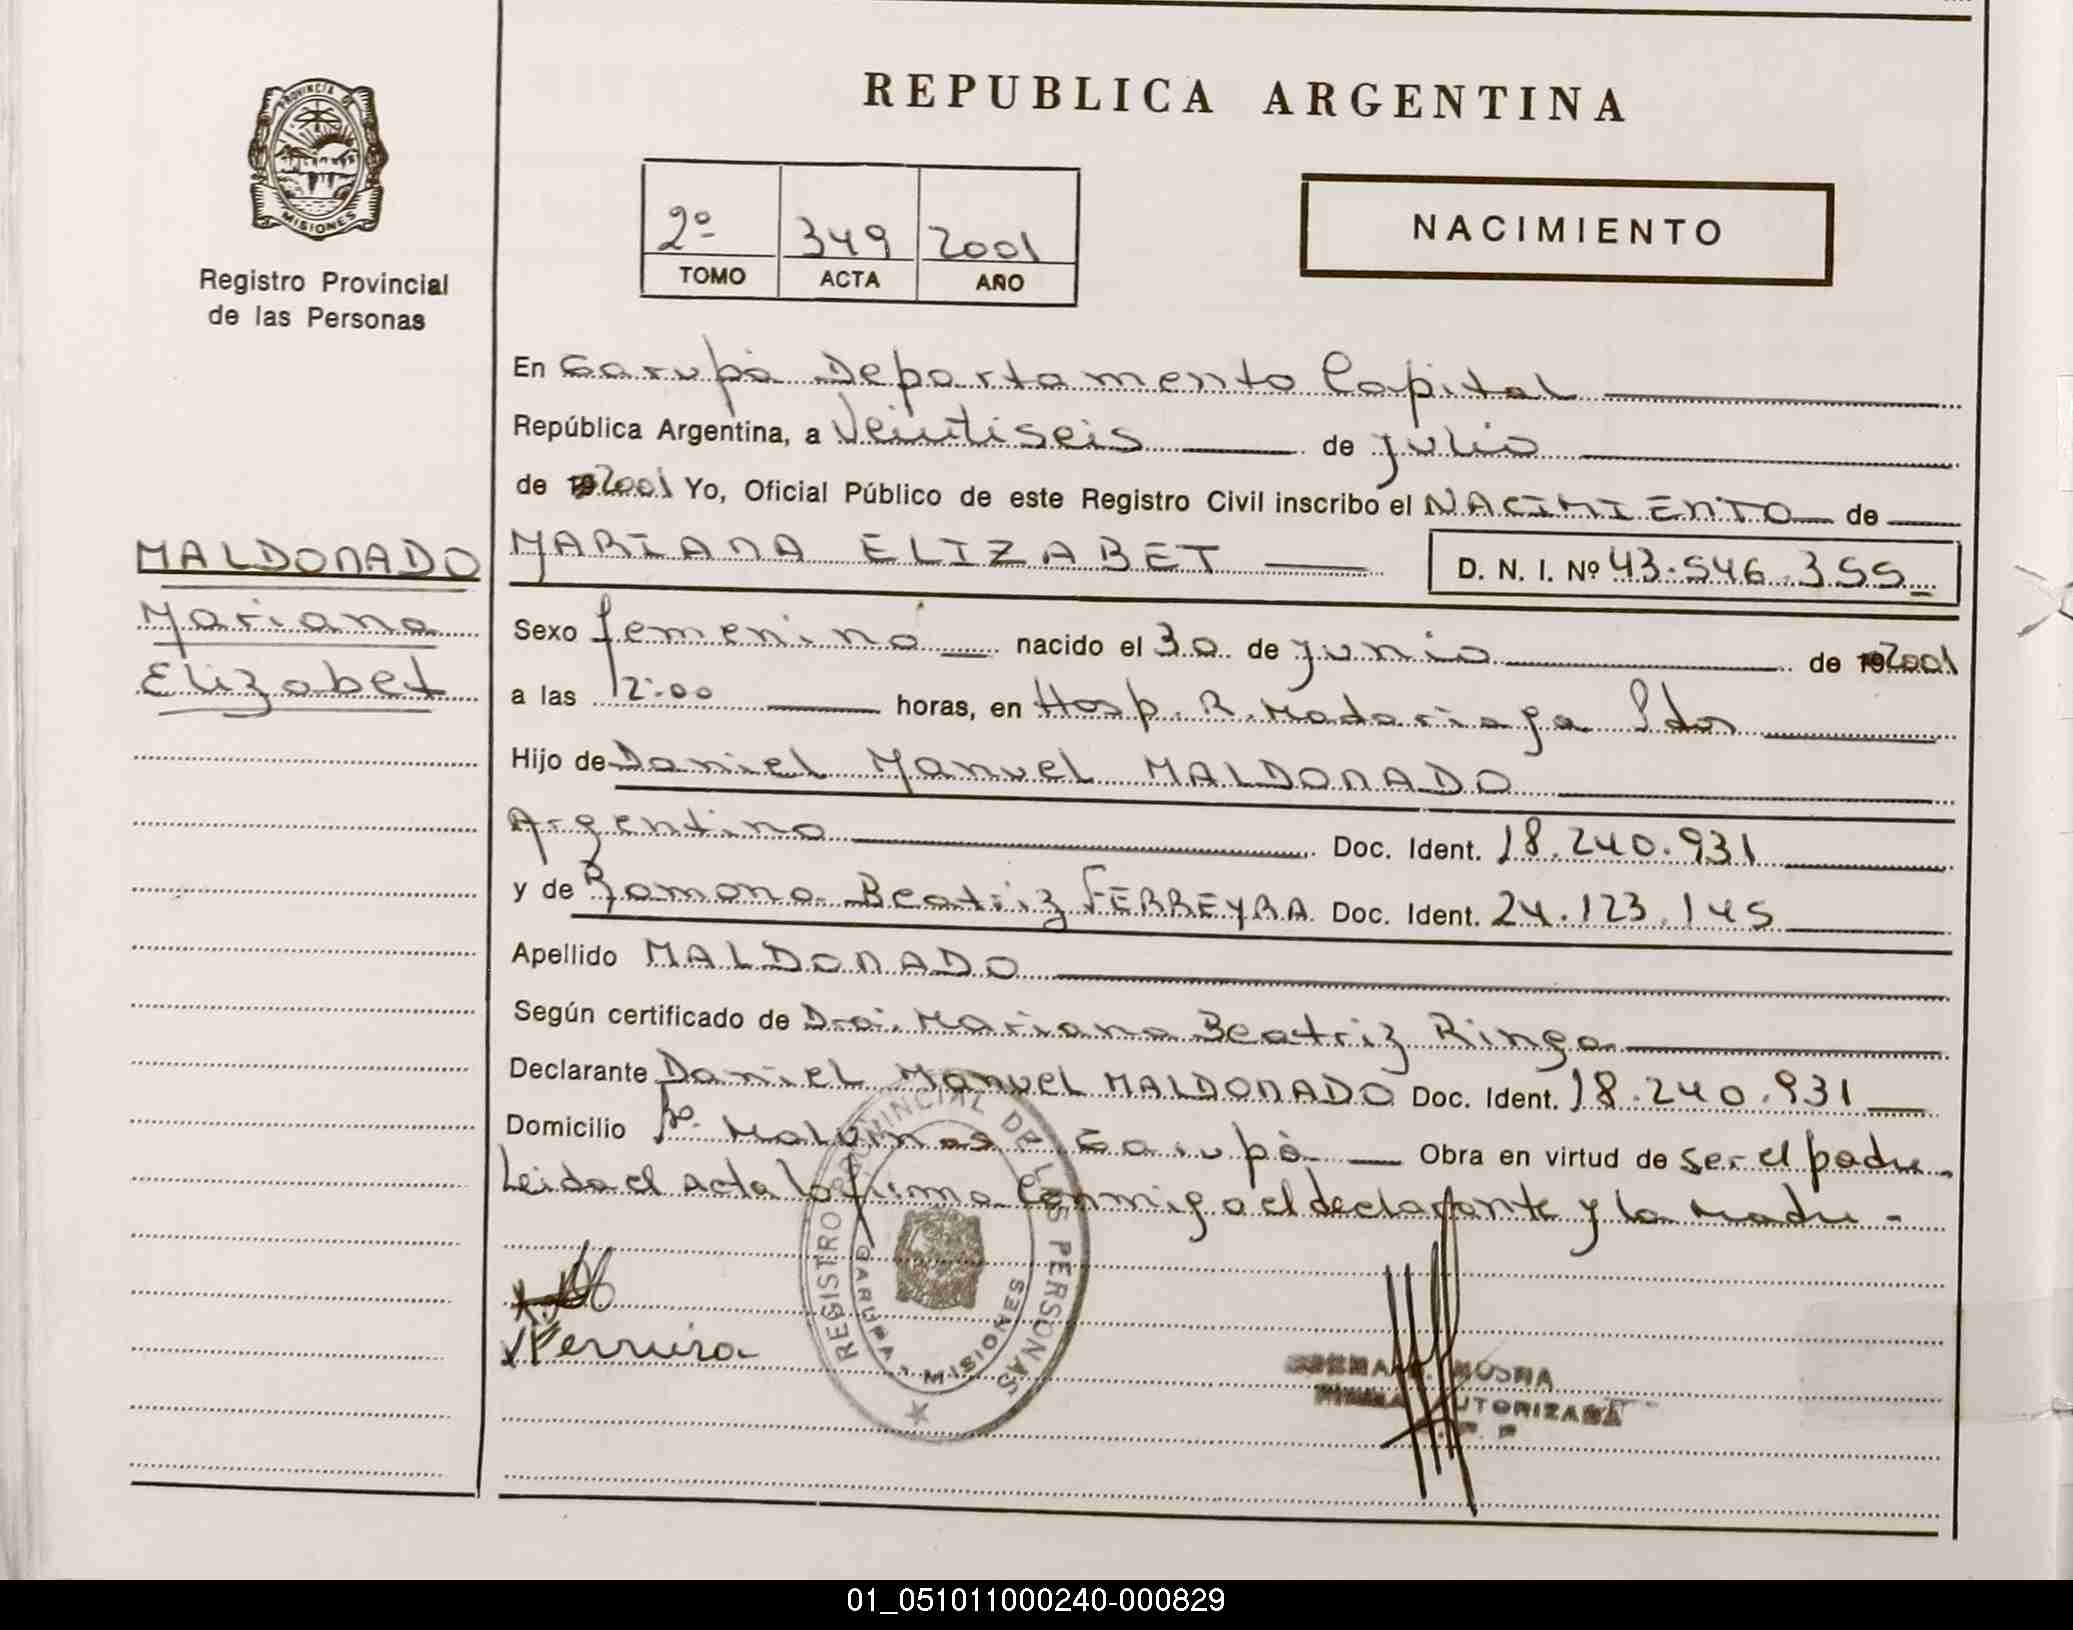 REPUBLICA ARGENTINA
PROVINCIA DE
MISIONES
Registro Provincial
de las Personas
2º 349 2001
TOMO ACTA AÑO
NACIMIENTO
En Garupá Departamento Capital
República Argentina, a Veintiseis de julio
de 2001 Yo, Oficial Público de este Registro Civil inscribo el NACIMIENTO de
MALDONADO
Mariana
Elizabet
MARIANA ELIZABET D. N. I. Nº 43.546.355
Sexo femenino nacido el 30 de junio de 2001
a las 12:00 horas, en Hosp. R. Madariaga Pdas
Hijo de Daniel Manuel MALDONADO
Argentino Doc. Ident. 18.240.931
y de Ramona Beatriz FERREYRA Doc. Ident. 24.123.145
Apellido MALDONADO
Según certificado de Dra. Mariana Beatriz Ringa
Declarante Daniel Manuel MALDONADO Doc. Ident. 18.240.931
Domicilio Bº Malvinas Garupá Obra en virtud de ser el padre
Leida el acta la firma conmigo el declarante y la madre -
REGISTRO PROVINCIAL DE LAS PERSONAS
GARUPA - MISIONES
MOSNA
AUTORIZADA
01_051011000240-000829